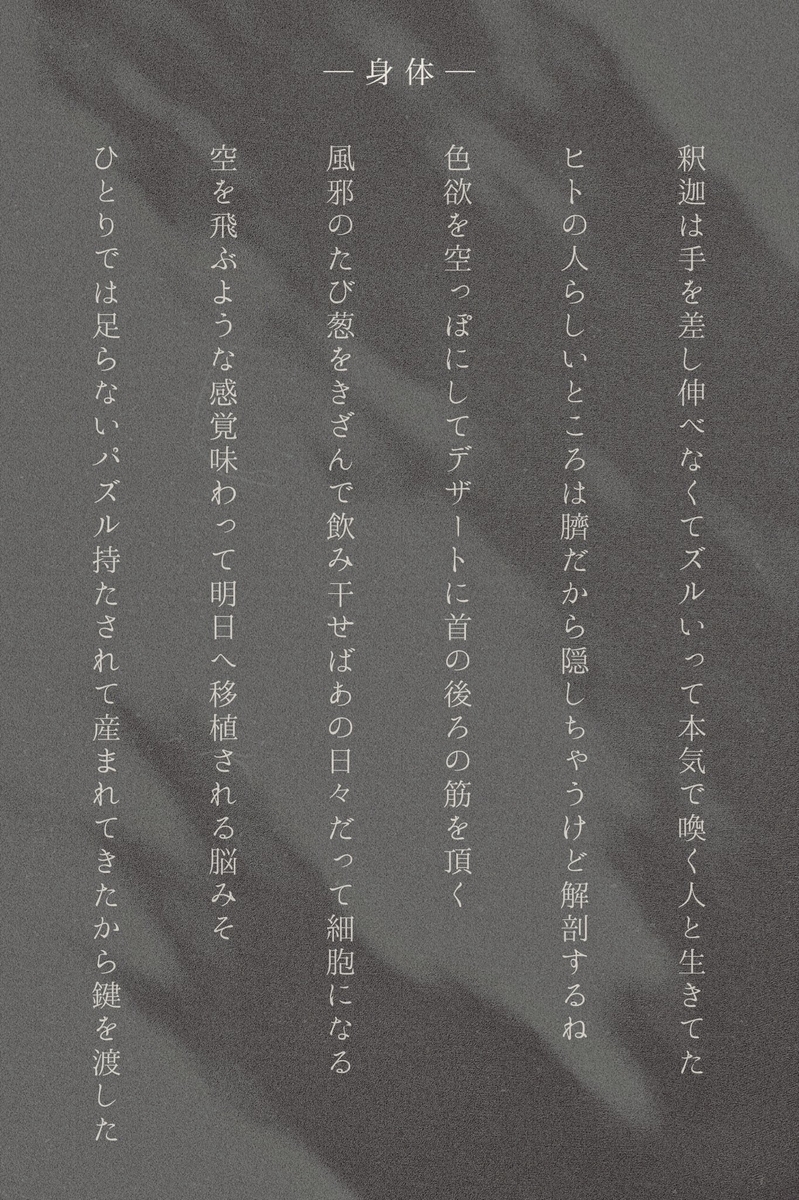 ― 身体 ―
釈迦は手を差し伸べなくてズルいって本気で喚く人と生きてた
ヒトの人らしいところは臍だから隠しちゃうけど解剖するね
色欲を空っぽにしてデザートに首の後ろの筋を頂く
風邪のたび葱をきざんで飲み干せばあの日々だって細胞になる
空を飛ぶような感覚味わって明日へ移植される脳みそ
ひとりでは足らないパズル持たされて産まれてきたから鍵を渡した